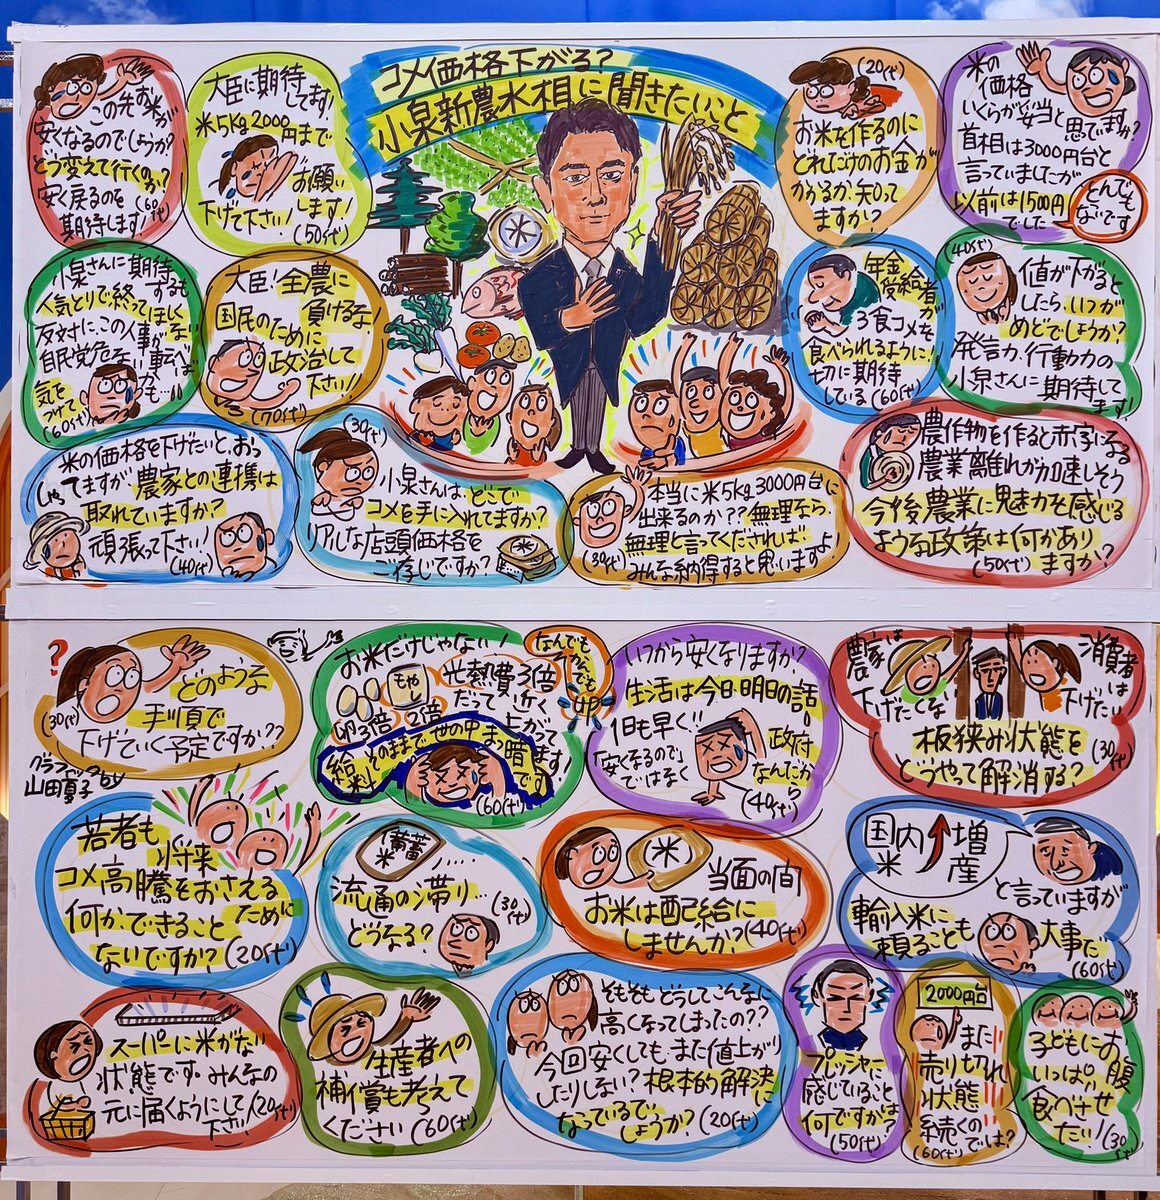 コメ価格下がる?
小泉新農水相に聞きたいこと
この先も米が
安くなるのでしょうか?
どう変えて行くのか?
安く戻るのを
期待します!
(60代)
大臣に期待
してます!
米5kg2000円まで
お願い
します!
下げて下さい!
(50代)
(20代)
お米を作るのに
どれだけのお金が
かかるか、知って
ますか?
米の
価格
いくらが妥当と思ってますか?
首相は3000円台と
言っていましたが
以前は1500円
でした
とんでも
ないです
小泉さんに期待
人気とりで終ってほしく
ない
反対に、この人事が
自民党危ない!
気を
つけて、
(60代)
大臣!全農に
負けるな
国民のために
政治して
下さい!!
(70代)
年金
受給者が
3食コメを
食べられるように!
切に期待
している(60代)
(40代)
値が下がると
したら、いつが
めどでしょうか?
発言力、行動力の
小泉さんに期待して
ます!
米の価格を下げたいと、おっ
しゃってますが農家との連携は
取れていますか?
頑張って下さい!
(40代)
(30代)
小泉さんは、どこで
コメを手に入れてますか?
リアルな店頭価格を
ご存じですか?
米
本当に米5kg3000円台に
出来るのか??無理なら、
無理と言ってくだされば
みんな納得すると思いますよ!
(30代)
農作物を作ると赤字になる
農業離れが加速しそう
今後農業に魅力を感じる
ような政策は何かあり
ますか?
(50代)
どのような
手順で
下げていく予定ですか??
(30代)
グラフィックby
山田夏子
お米だけじゃない!
もやし
卵3倍
2倍
光熱費3倍
だって近く
上がって
ます!
なんでも
かんでも
UP
給料そのままで、世の中まっ暗です
(60代)
いつから安くなりますか?
生活は今日、明日の話
1日も早く!
「安くなるので」
ではなく
政府
なんだから
(40代)
農家は
下げたくな
消費者
は
下げたい
板挟み状態を
どうやって解消する?
(30代)
若者も
将来
コメ高騰をおさえる
ために
何か、できること
ないですか?(20代)
備蓄
米
流通の滞り‥‥
どうなる?
(30代)
米
当面の間
お米は配給に
しませんか?(40代)
国内
米
増
産
と言っていますが
輸入米に
頼ることも
大事だ
(60代)
スーパーに米がない
状態です。みんなの
元に届くようにして
下さい!
(20代)
生産者への
補償も考えて
ください
(60代)
そもそもどうしてこんなに
高くなってしまったの??
今回安くしても、また値上がり
したりしない?根本的解決に
なっているで
しょうか?(20代)
プレッシャーに
感じていること
は
何ですか?
(50代)
2000円台
また
売り切れ
状態
続くの
では?
(60代)
子どもにお腹
いっぱい
食べさせ
たい!
(30代)